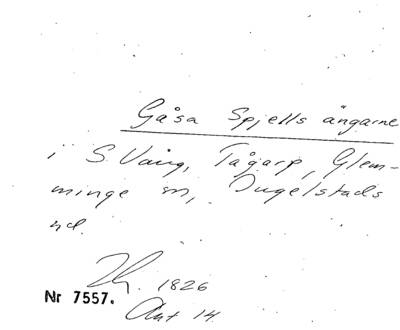 Gåsa Spjells ängarne
i S. Vång, Tågarp, Glem-
minge sn, Ingelstads
hd.
1826
Nr 7557.
Akt 14.